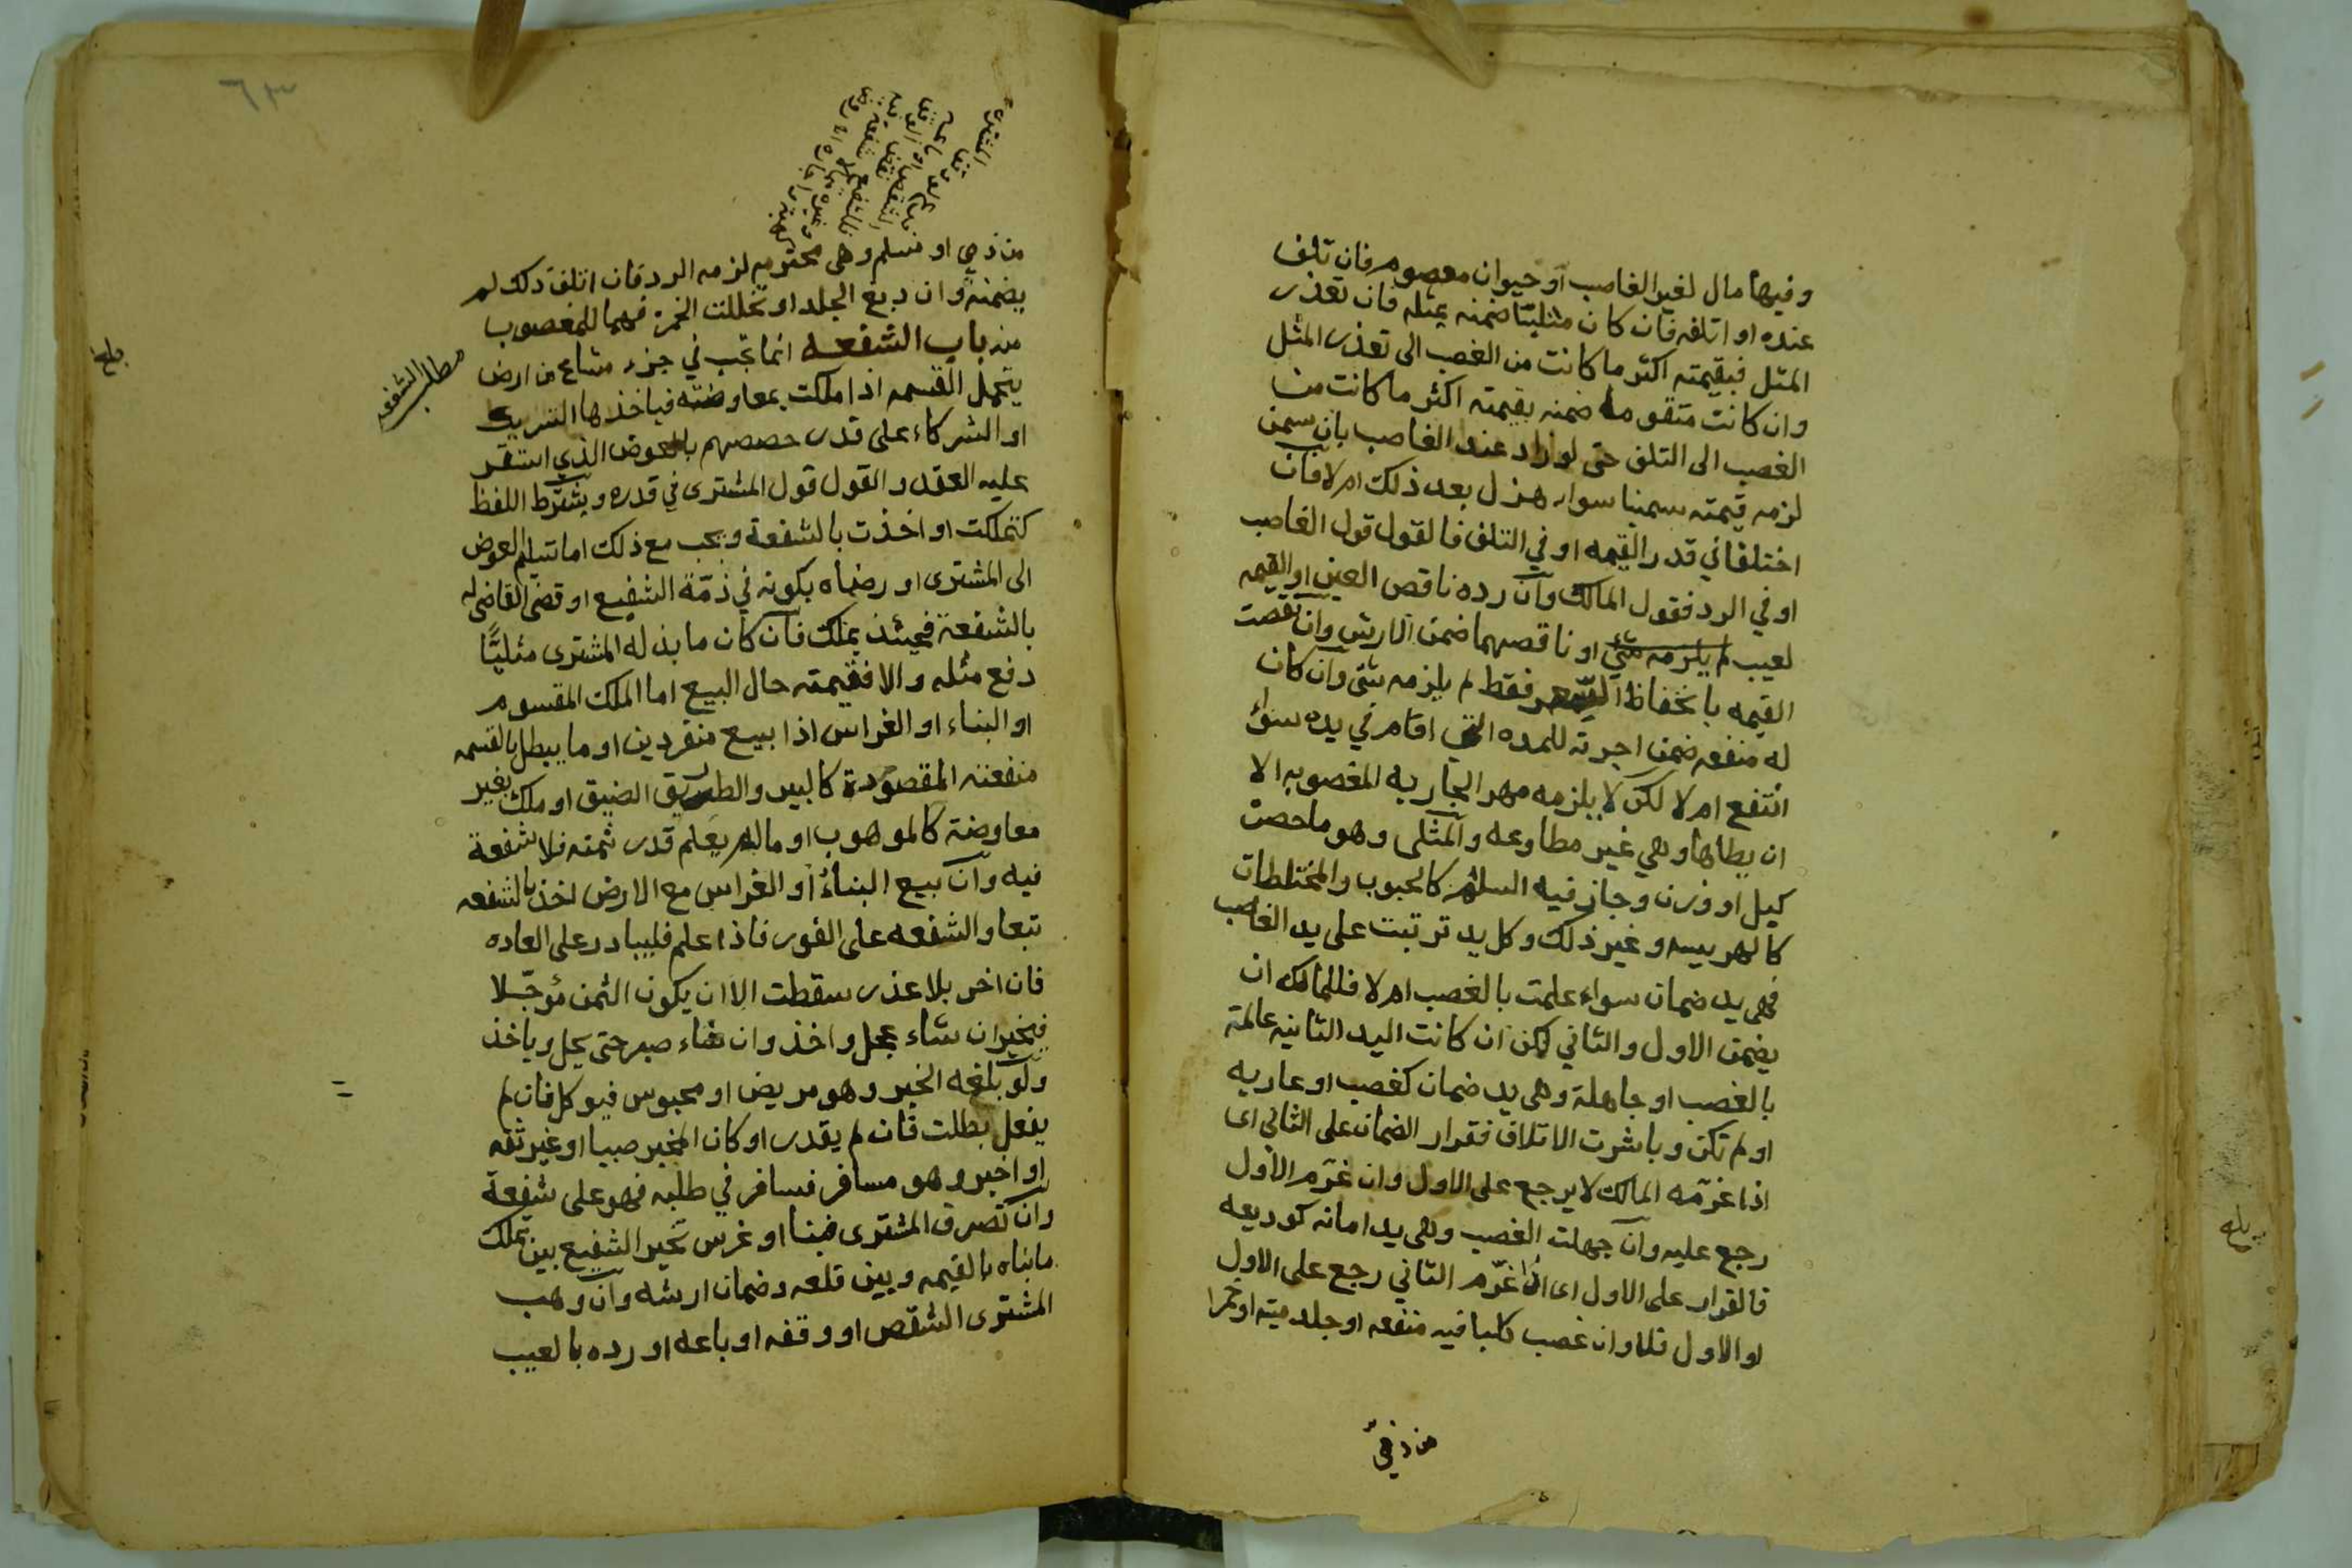 وفيها مال لغير الغاصب او حيوان معصوم فان تلف
عنده او اتلفه فان كان مثليّا ضمنه بمثله فان تعذر
المثل فبقيمته اكثر ما كانت من الغصب الى تعذر المثل
وان كانت متقوما ضمنه بقيمته اكثر ما كانت من
الغصب الى التلف حتى لو زاد عند الغاصب بان سمن
لزمه قيمته سمينا سواء هزل بعد ذلك ام لا فان
اختلفا في قدر القيمه او في التلف فالقول قول الغاصب
او في الرد فقول المالك وان رده ناقص العين او القيمه
لعيب او ناقصهما ضمن الارش وان نقصت
القيمه بانخفاظ السعر فقط لم يلزمه شي وان كان
له منفعه ضمن اجرته للمده التي اقام في يده سواء
انتفع ام لا لكن لا يلزمه مهر الجاريه المغصوبه الا
ان يطاها وهي غير مطاوعه والمثلى وهو ما حصر
كيل او وزن وجاز فيه السلم كالحبوب والمختلطات
كالهريسه وغير ذلك وكل يد ترتبت على يد الغاصب
فهي يد ضمان سواء علمت بالغصب ام لا فللمالك ان
يضمن الاول والثاني لكن ان كانت اليد الثانيه عالمة
بالغصب او جاهلة وهي يد ضمان كغصب او عاريه
او لم تكن وباشرت الاتلاف فقرار الضمان على الثاني اى
اذا غرّمه المالك لا يرجع على الاول وان غرّم الاول
رجع عليه وان جهلت الغصب وهي يد امانه كوديعه
فالقرار على الاول اى اذا غرّم الثاني رجع على الاول
او الاول فلا وان غصب كلبا فيه منفعه او جلد ميته او خمرا
من ذمي
٦٣
من ذمي او مسلم وهي محترمه لزمه الرد فان اتلف ذلك لم
يضمنه وان دبغ الجلد او تخللت الخمر فهما للمغصوب
منه باب الشفعه انما تجب في جزء مشاع من ارض
مطلب الشفعه
يحتمل القسمه اذا ملكت بمعاوضته فياخذها الشريك
او الشركاء على قدر حصصهم بالعوض الذي استقر
عليه العقد والقول قول المشترى في قدره ويشترط اللفظ
كتملكت او اخذت بالشفعة ويجب مع ذلك اما تسليم العوض
الى المشترى او رضاه بكونه في ذمّة الشفيع او قضى القاضي له
بالشفعة فحينئذ يملك فان كان ما بذله المشترى مثليًّا
دفع مثله والا فقيمته حال البيع اما الملك المقسوم
او البناء او الغراس اذا بيع منفردين او ما يبطل بالقسمه
منفعته المقصودة كالبير والطريق الضيق او ملك بغير
معاوضة كالموهوب او مالم يعلم قدر ثمنه فلا شفعة
فيه وان بيع البناء او الغراس مع الارض اخذ بالشفعه
تبعا والشفعه على الفور فاذا علم فليبادر على العاده
فان اخر بلا عذر سقطت الا ان يكون الثمن مؤجّلا
فيخير ان شاء عجل واخذ وان شاء صبر حتى يحل وياخذ
ولو بلغه الخبر وهو مريض او محبوس فيوكل فان لم
يفعل بطلت فان لم يقدر او كان المخبر صبيا او غير ثقه
او اخبر وهو مسافر فسافر في طلبه فهو على شفعة
وان تصرف المشترى فبنا او غرس تخير الشفيع بين تملك
مابناه بالقيمه وبين قلعه وضمان ارشه وان وهب
المشترى الشقص او وقفه او باعه او رده بالعيب